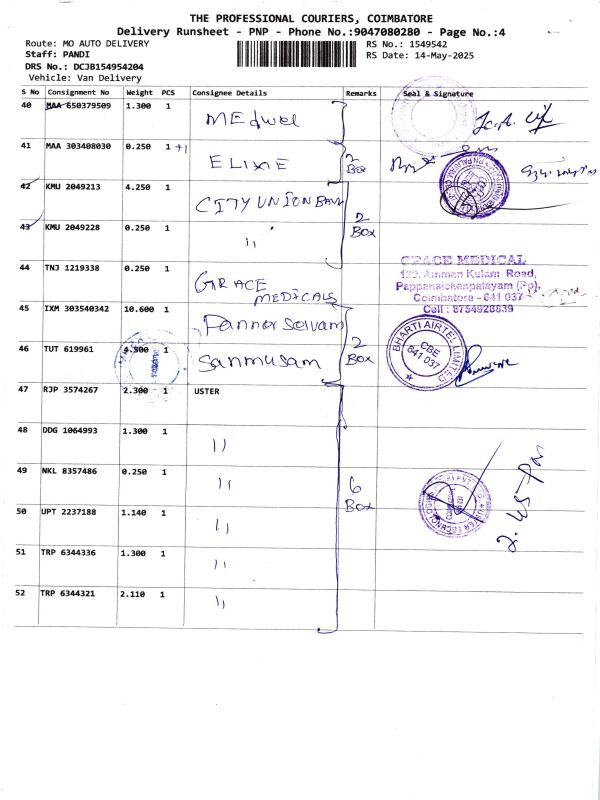 THE PROFESSIONAL COURIERS, COIMBATORE
Delivery Runsheet - PNP - Phone No.:9047080280 - Page No.:4
Route: MO AUTO DELIVERY RS No.: 1549542
Staff: PANDI RS Date: 14-May-2025
DRS No.: DCJB154954204
Vehicle: Van Delivery
S No Consignment No Weight PCS Consignee Details Remarks Seal & Signature
40 MAA 650379509 1.300 1 MEdwel
41 MAA 303408030 0.250 1 +1 ELIXIE 2 Box
42 KMU 2049213 4.250 1 CITY UNION BANK
43 KMU 2049228 0.250 1 " 2 Box
44 TNJ 1219338 0.250 1 GRACE MEDICALS
GRACE MEDICAL
129, Amman Kulam Road,
Pappanaickenpalayam (Po),
Coimbatore - 641 037
Cell : 8754928639
45 IXM 303540342 10.600 1 Pannerselvam
46 TUT 619961 4.500 1 Sanmusam 2 Box
BHARTI AIRTEL LIMITED
CBE
641 037
47 RJP 3574267 2.300 1 USTER
48 DDG 1064993 1.300 1 "
49 NKL 8357486 0.250 1 " 6 Box
50 UPT 2237188 1.140 1 "
51 TRP 6344336 1.300 1 "
52 TRP 6344321 2.110 1 "